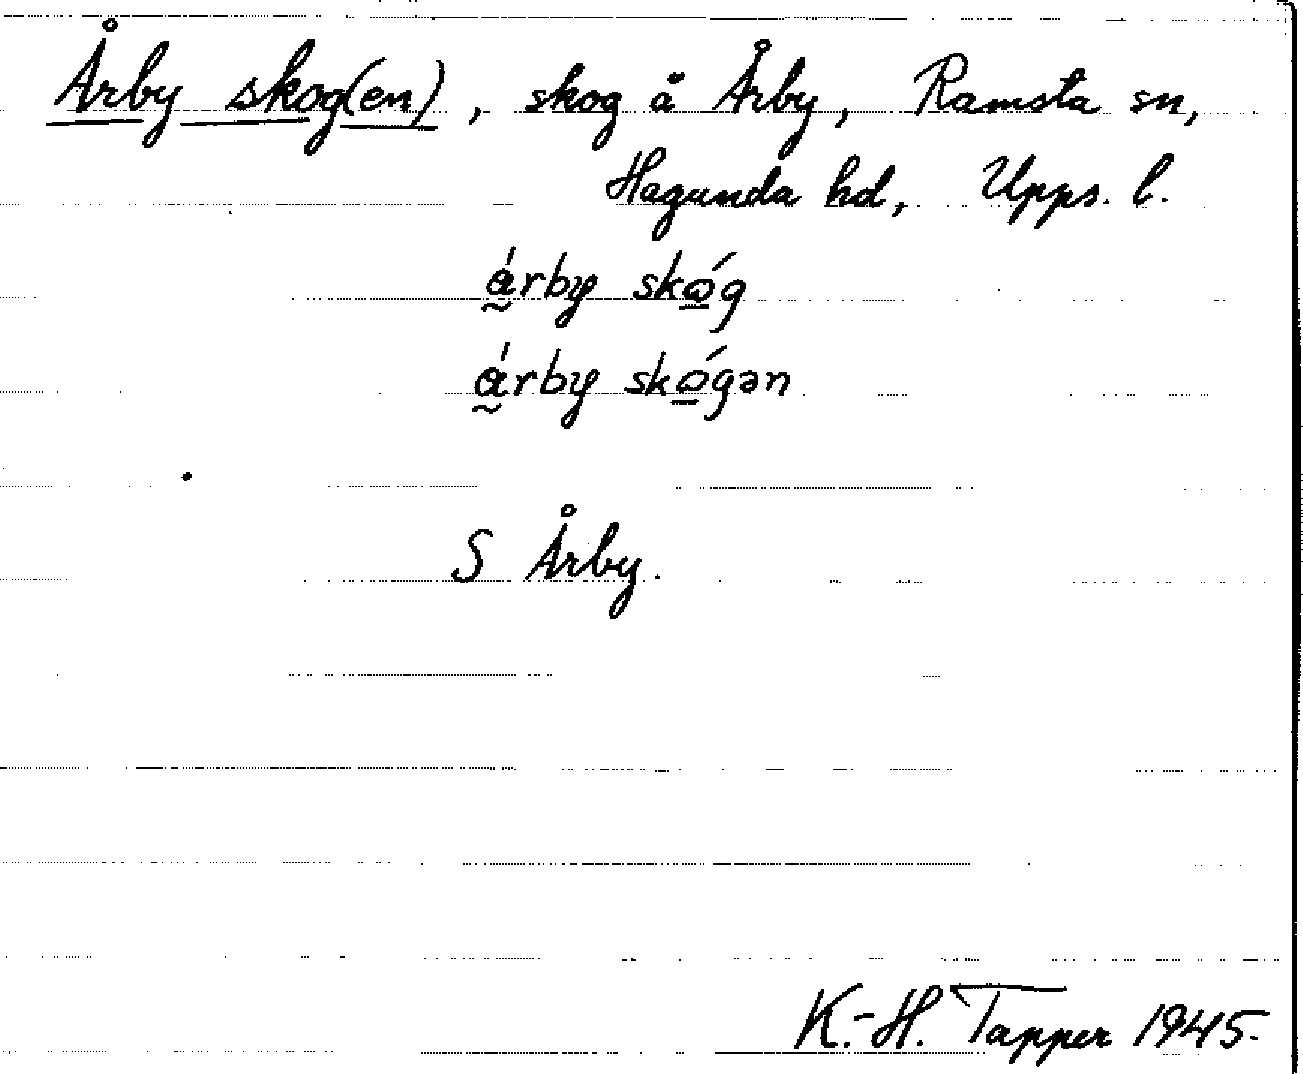 Årby skog(en), skog å Årby, Ramsta sn,
Hagunda hd, Upps. l.
ǻ̰rby skώ̲g
ǻ̰rby skώ̲gən
S Årby.
K.-H. Tapper 1945.